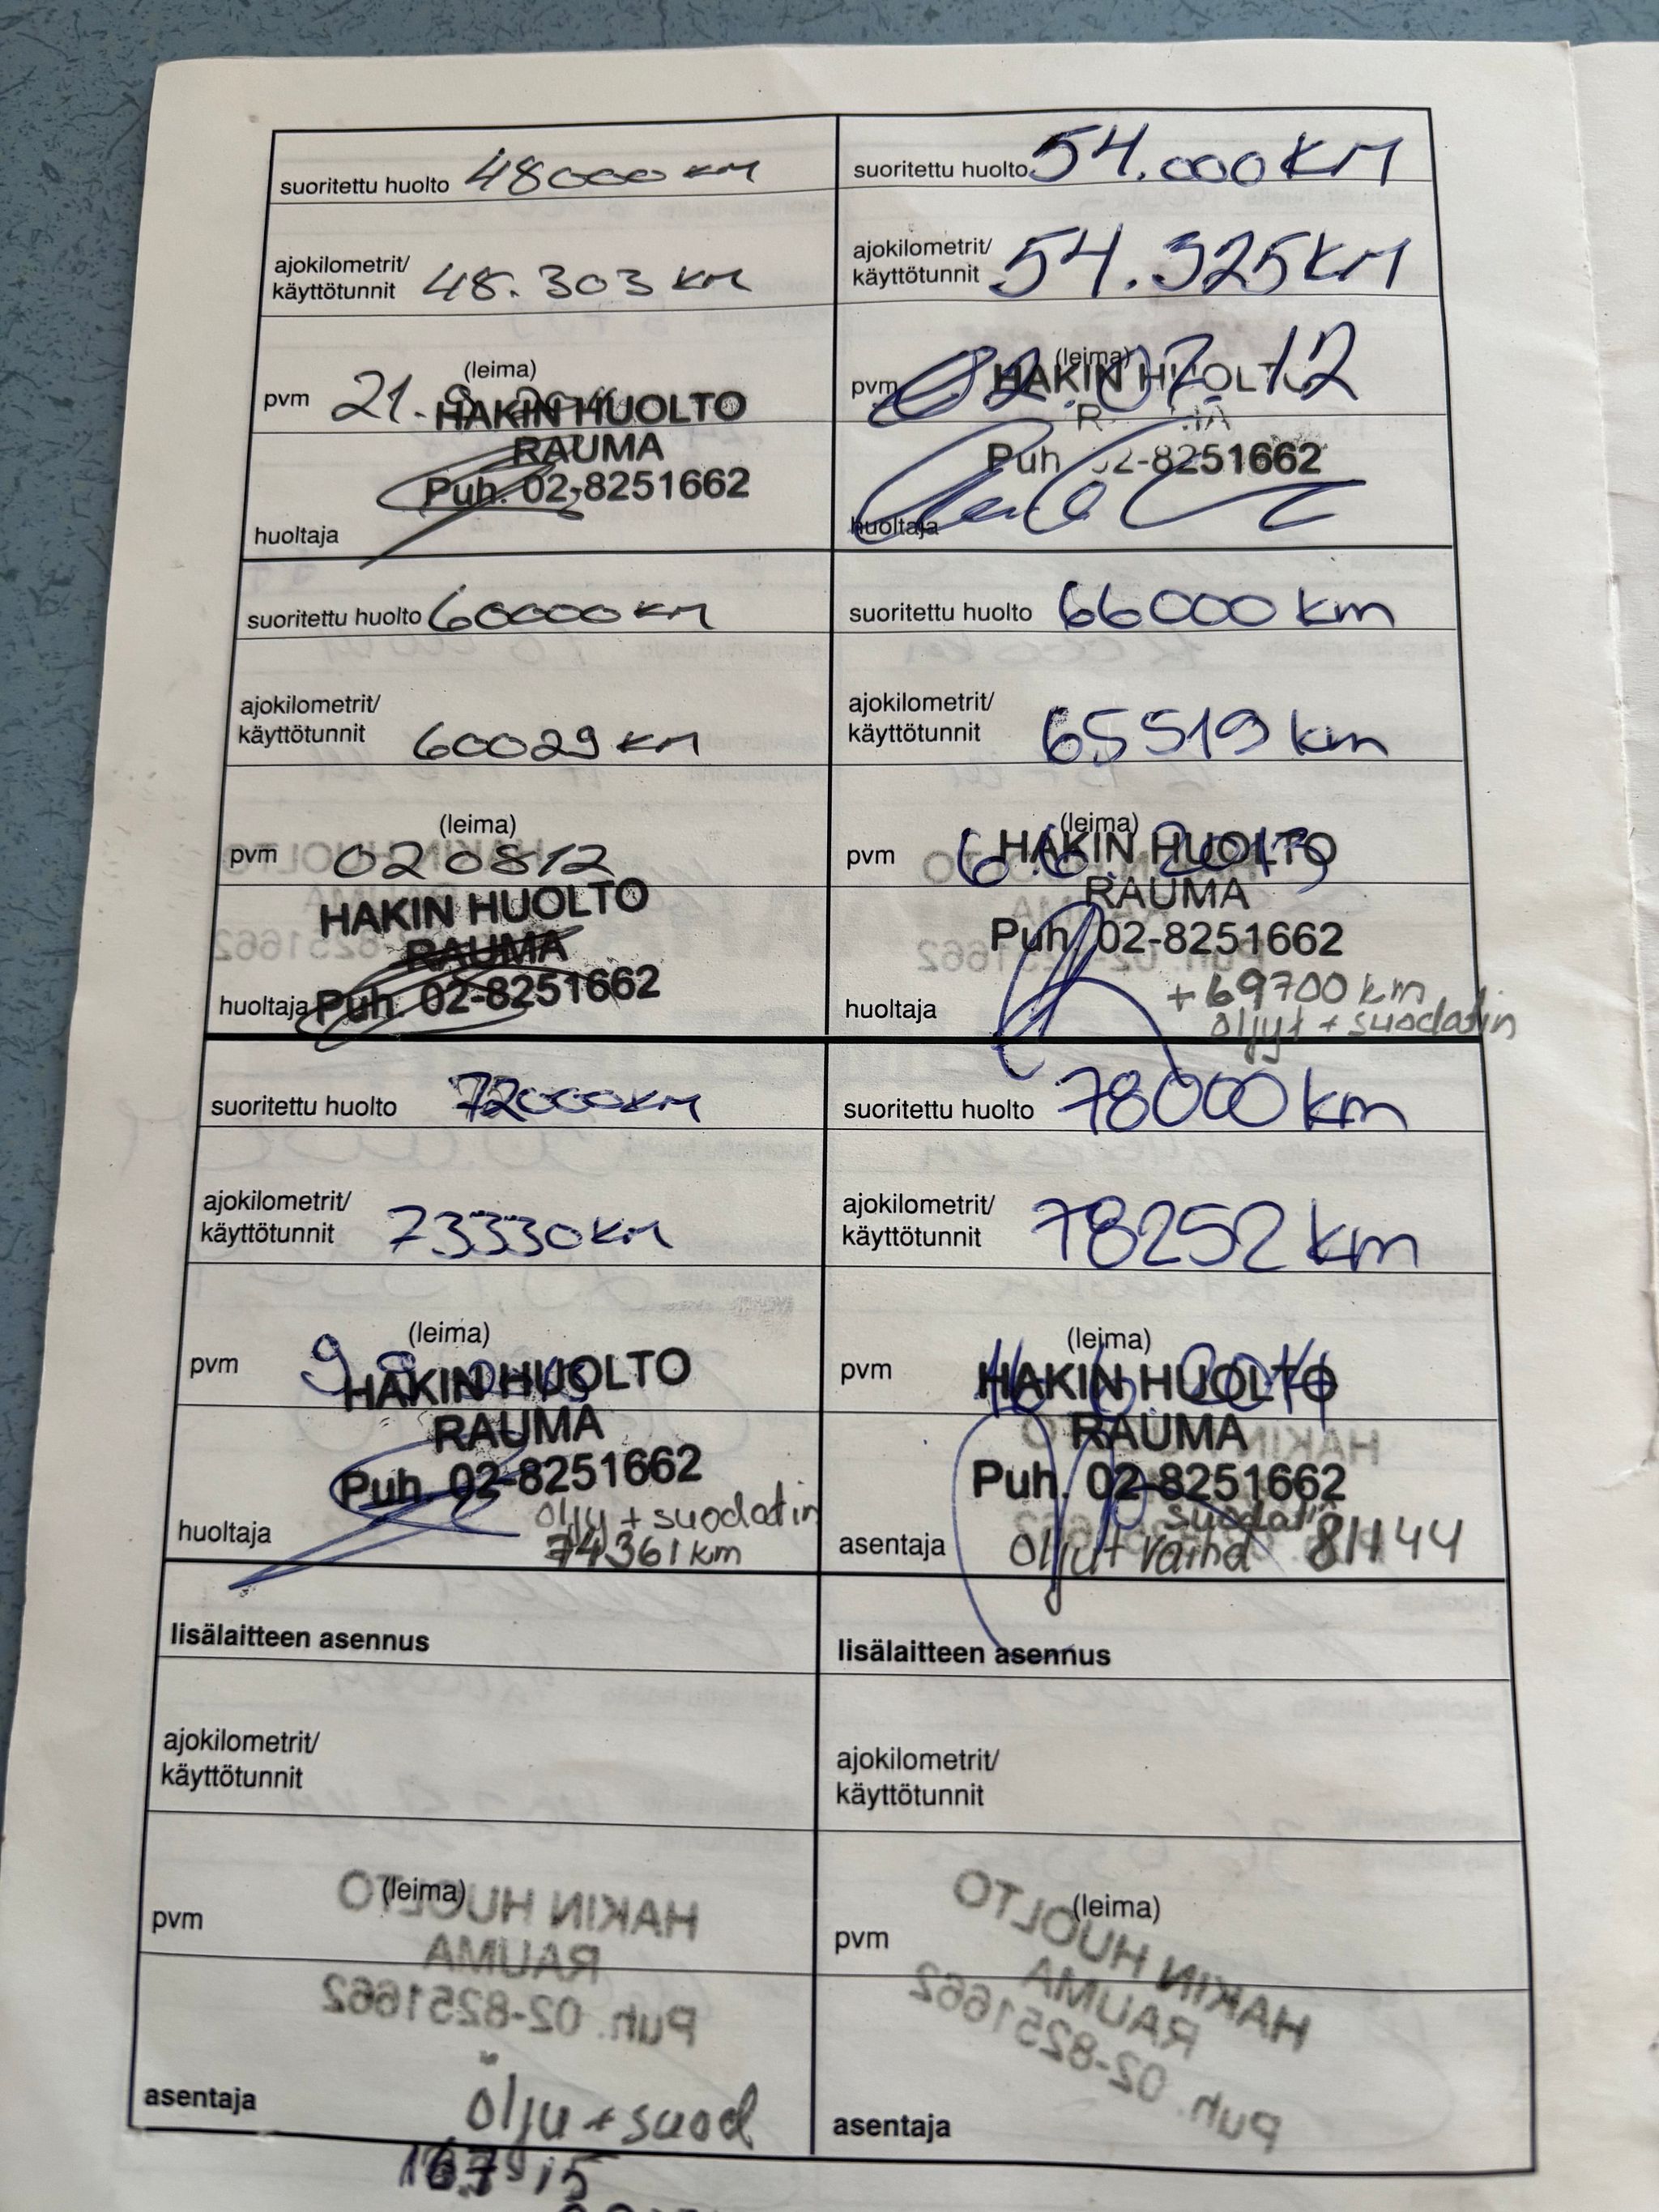 suoritettu huolto 48000 km
ajokilometrit/
käyttötunnit 48.303 km
(leima)
pvm 21.
HAKIN HUOLTO
RAUMA
Puh. 02-8251662
huoltaja
suoritettu huolto 54.000 KM
ajokilometrit/
käyttötunnit 54.325 KM
(leima)
pvm 02.07.12
HAKIN HUOLTO
Puh 02-8251662
huoltaja
suoritettu huolto 60000 KM
ajokilometrit/
käyttötunnit 60029 KM
(leima)
pvm 020812
HAKIN HUOLTO
RAUMA
huoltaja Puh. 02-8251662
suoritettu huolto 66000 km
ajokilometrit/
käyttötunnit 65519 km
(leima)
pvm 6.6. 2013
HAKIN HUOLTO
RAUMA
Puh. 02-8251662
+ 69700 km
huoltaja
öljyt + suodatin
suoritettu huolto 72000 KM
ajokilometrit/
käyttötunnit 73330 KM
(leima)
pvm 9
HAKIN HUOLTO
RAUMA
Puh. 02-8251662
öljy + suodatin
huoltaja 74361 km
suoritettu huolto 78000 km
ajokilometrit/
käyttötunnit 78252 km
(leima)
pvm
HAKIN HUOLTO
RAUMA
Puh. 02-8251662
suodatin
asentaja öljyt vaihd 81144
lisälaitteen asennus
ajokilometrit/
käyttötunnit
(leima)
pvm
HAKIN HUOLTO
RAUMA
Puh. 02-8251662
asentaja öljy + suod
lisälaitteen asennus
ajokilometrit/
käyttötunnit
(leima)
pvm
HAKIN HUOLTO
RAUMA
Puh. 02-8251662
asentaja